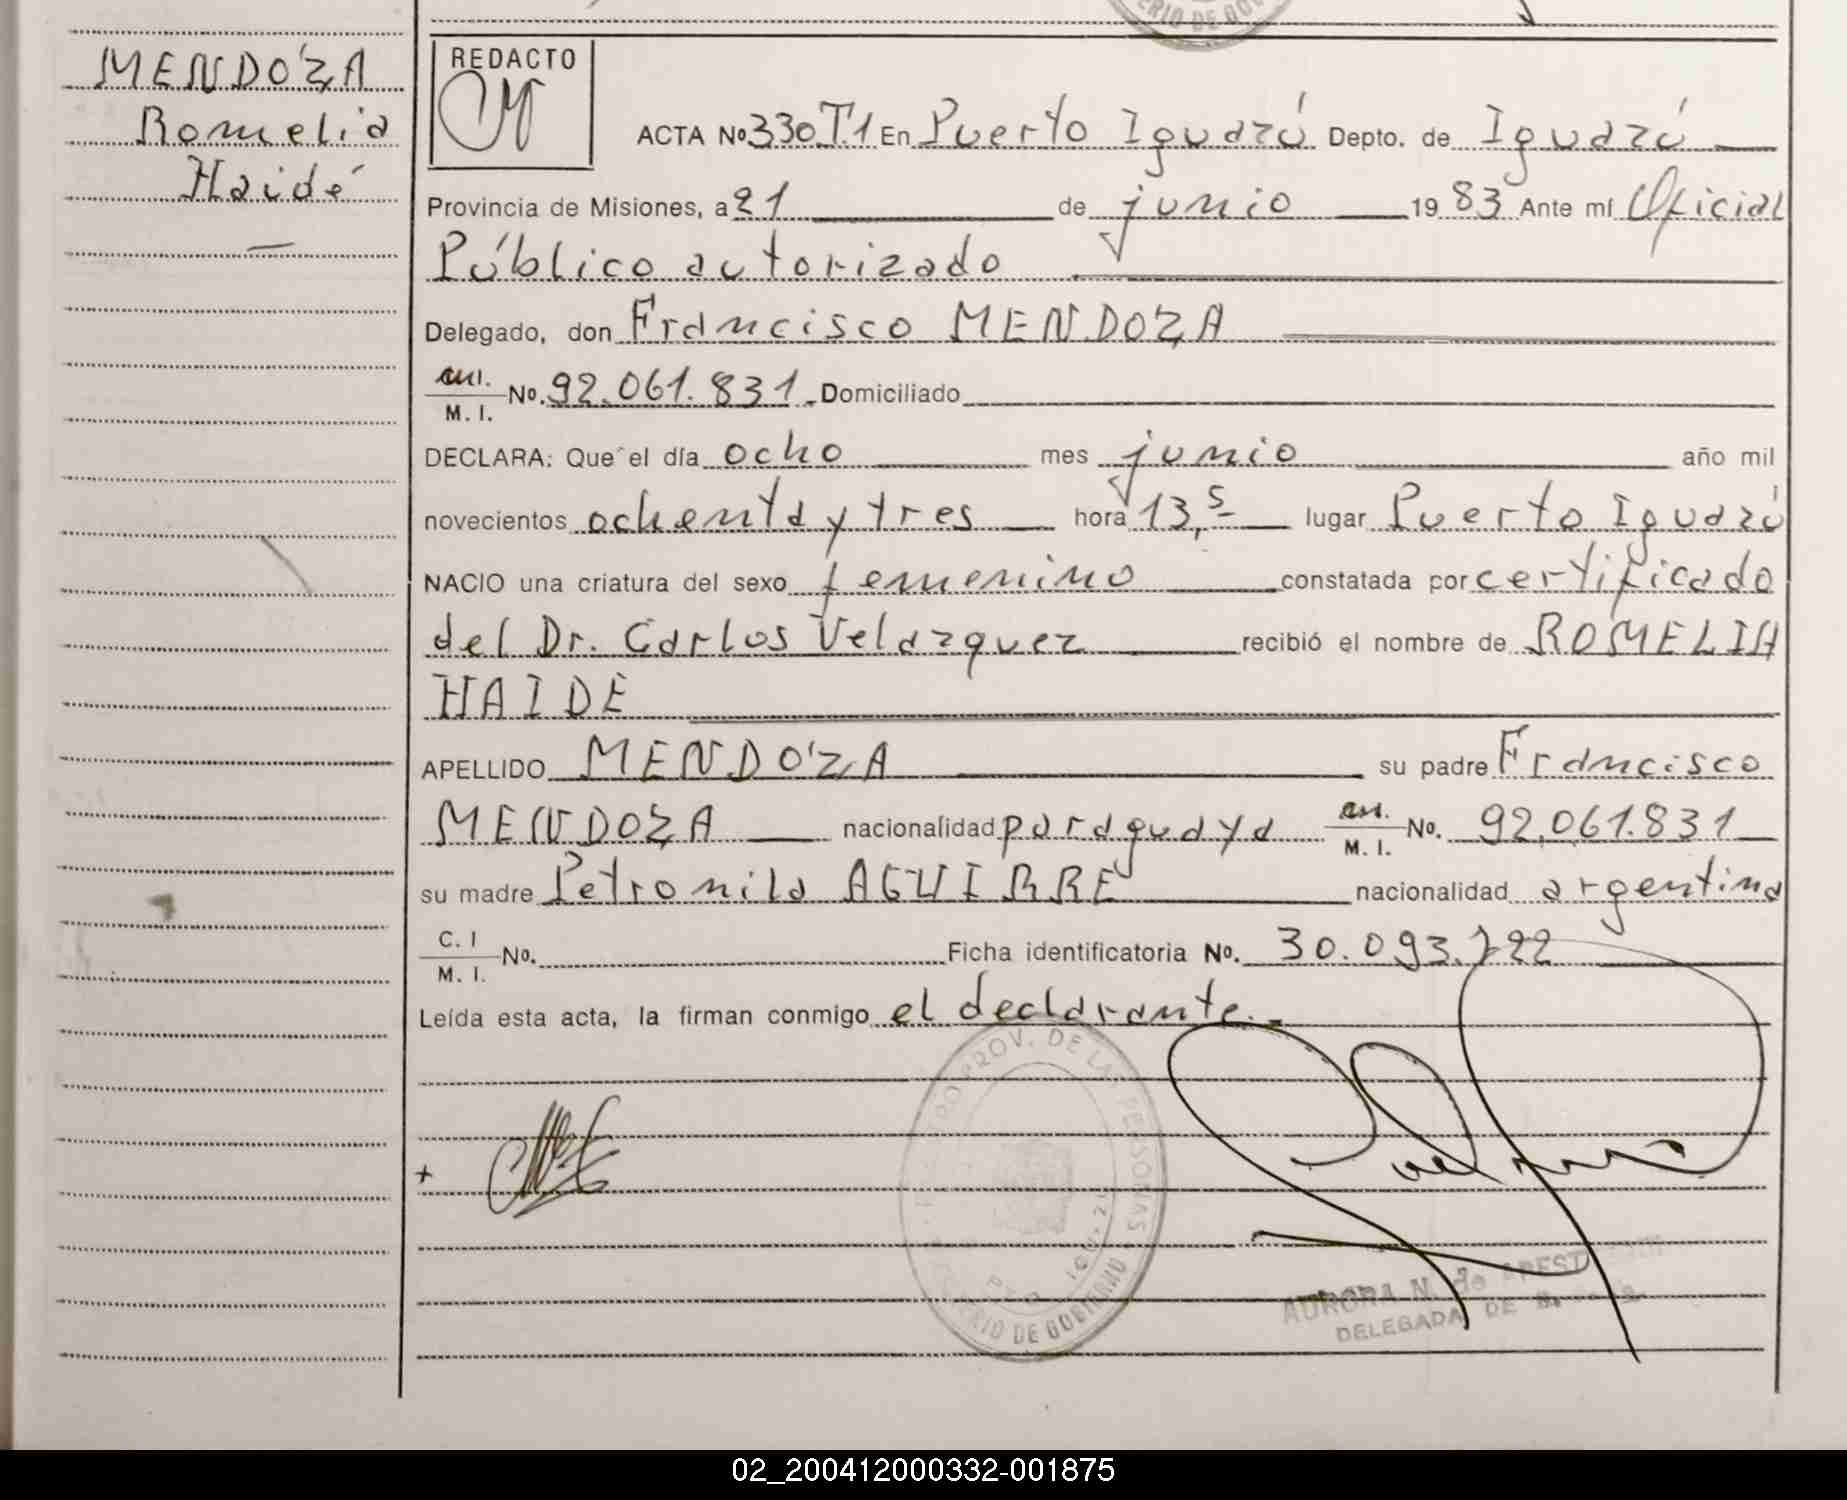 MENDOZA
Romelia
Haidé
REDACTO
ACTA Nº 330 T.1 En Puerto Iguazú Depto. de Iguazú
Provincia de Misiones, a 21 de junio 19 83 Ante mí Oficial
Público autorizado
Delegado, don Francisco MENDOZA
M. I. No. 92.061.831 Domiciliado
DECLARA: Que el día ocho mes junio año mil
novecientos ochenta y tres hora 13,5 lugar Puerto Iguazú
NACIO una criatura del sexo femenino constatada por certificado
del Dr. Carlos Velazquez recibió el nombre de ROMELIA
HAIDÉ
APELLIDO MENDOZA su padre Francisco
MENDOZA nacionalidad paraguaya M. I. No. 92.061.831
su madre Petronila AGUIRRE nacionalidad argentina
C. I M. I. No. Ficha identificatoria No. 30.093.722
Leída esta acta, la firman conmigo el declarante.
PROV. DE LAS PERSONAS
DE GOBIERNO
AURORA N. de
DELEGADA DE
02_200412000332-001875